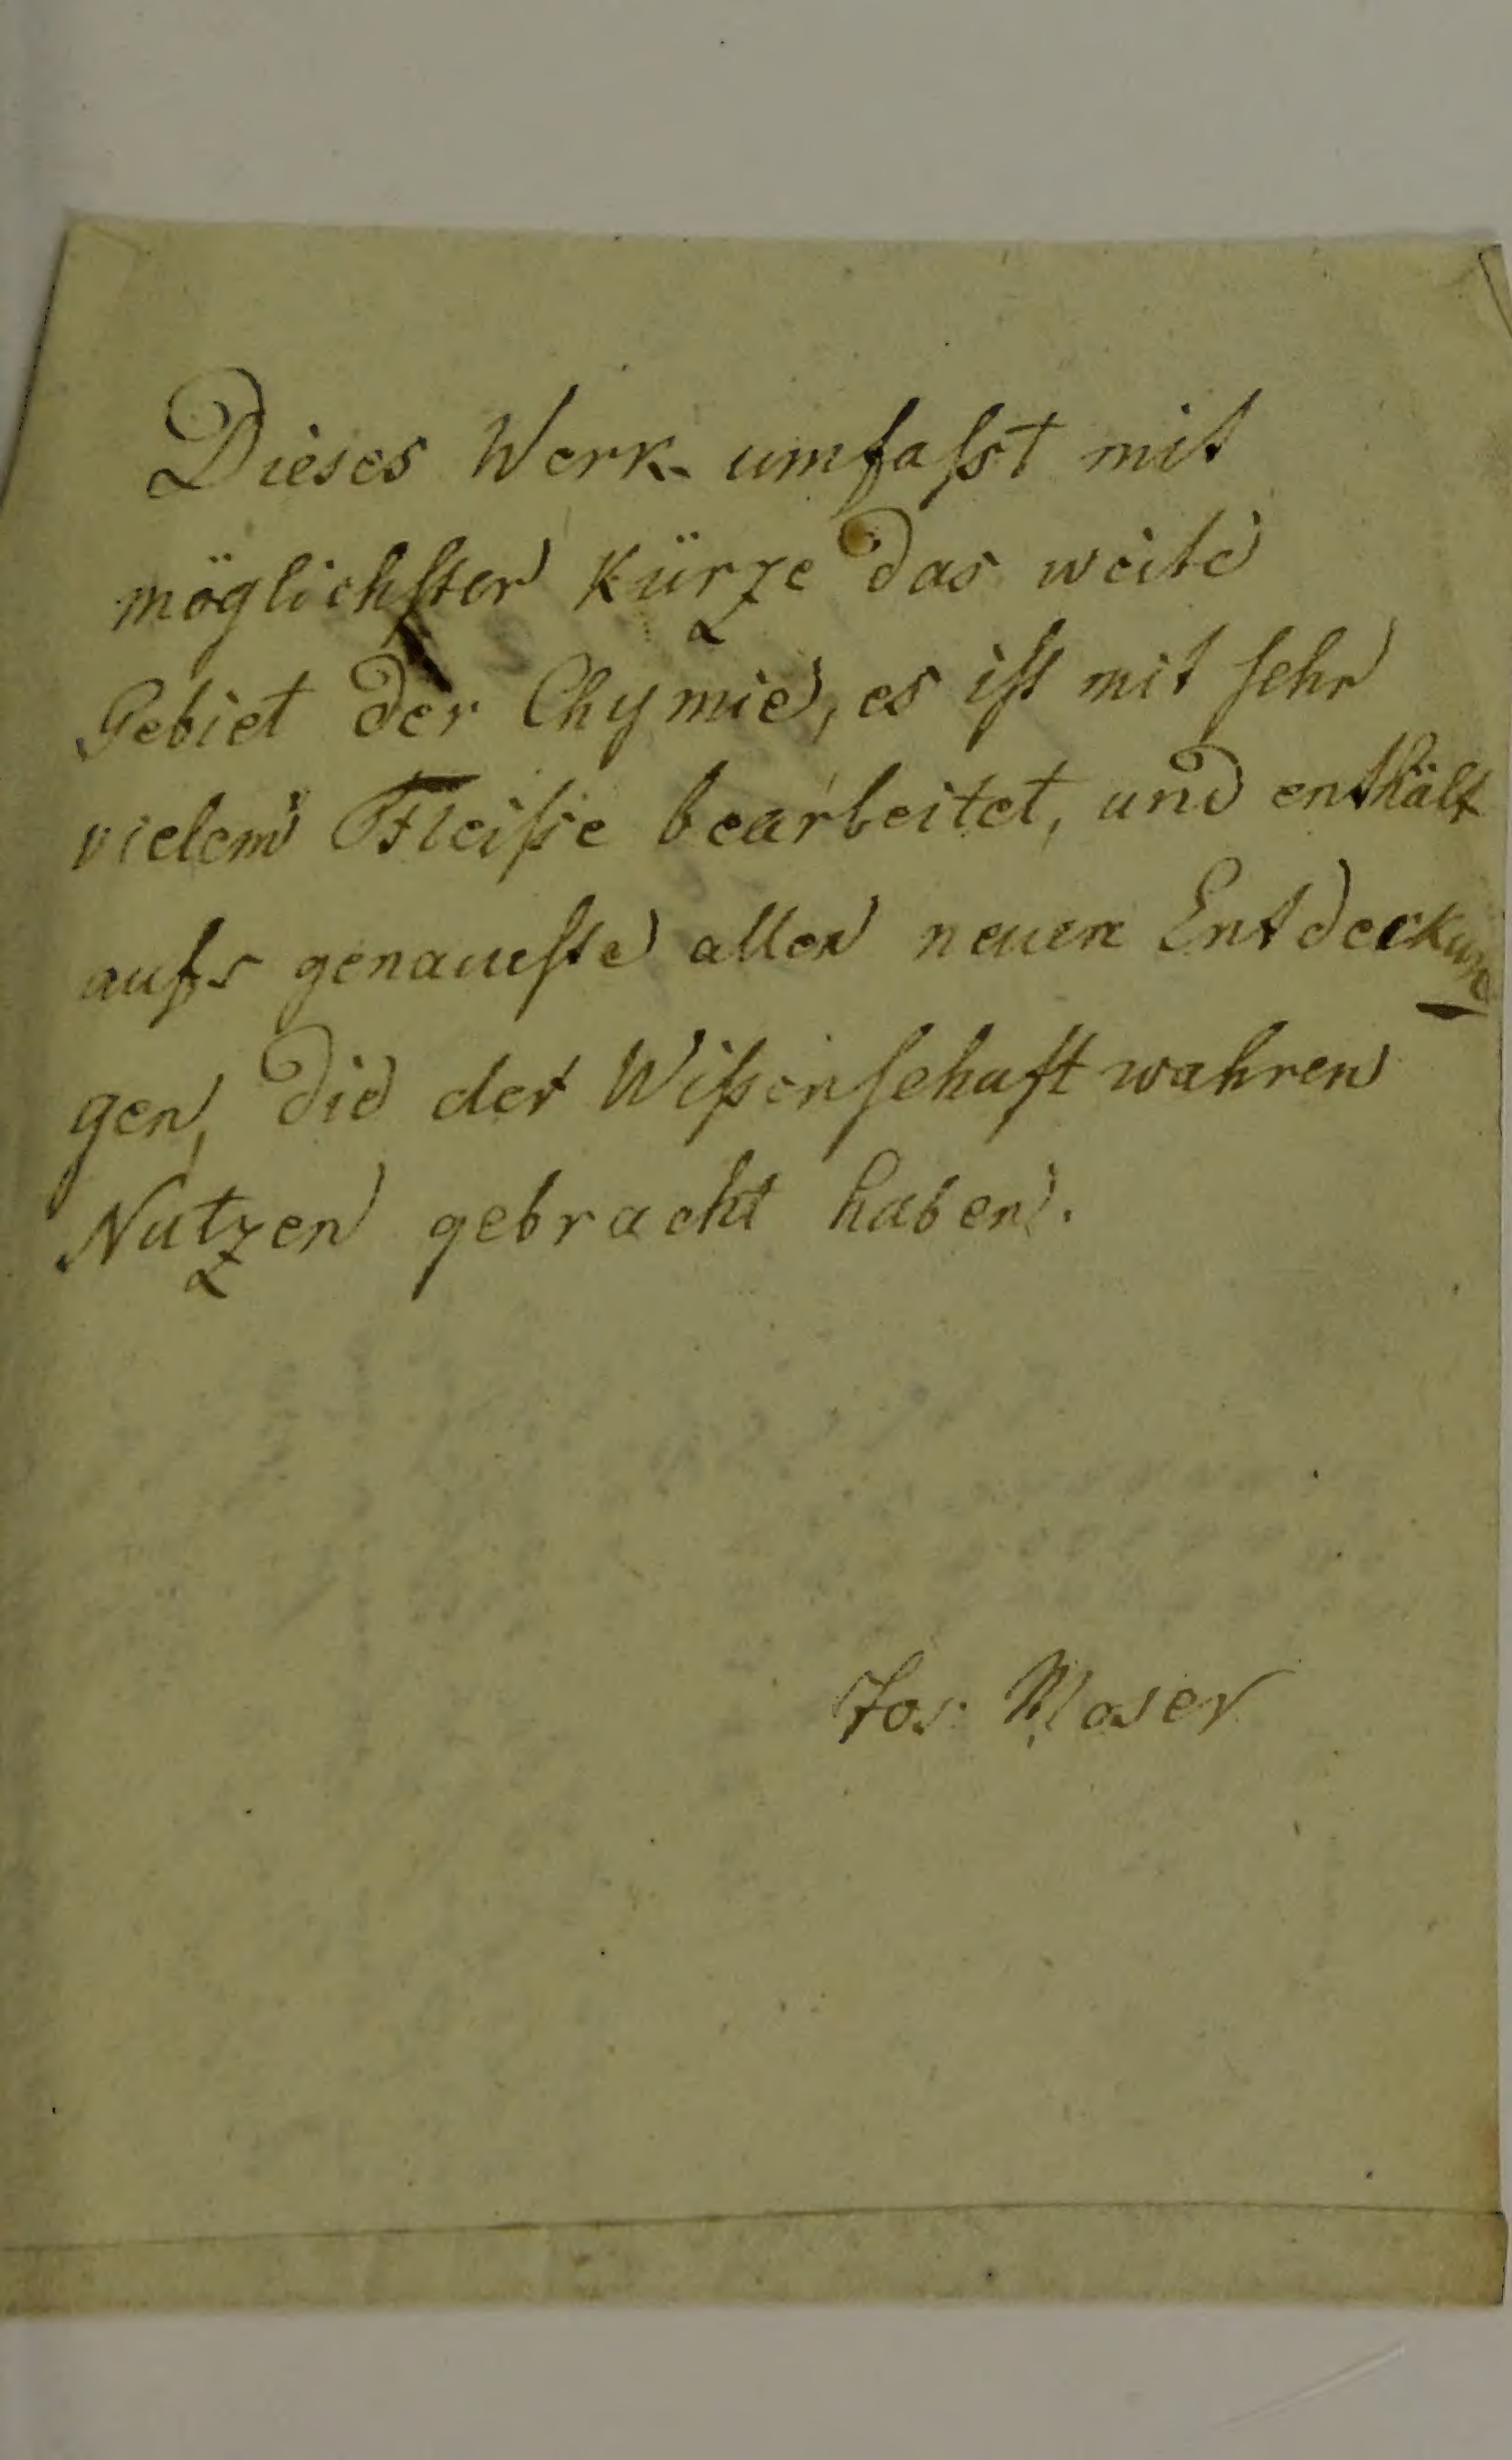 Dieses Werk umfaſst mit
möglichſter Kürze das weite
Gebiet der Chymie, es iſt mit ſehr
vielem Fleiße bearbeitet, und enthält
aufs genaueſte allen neuen Entdeckun
gen, die der Wißenſchaft wahren
Nutzen gebracht haben.
Jos: Moser